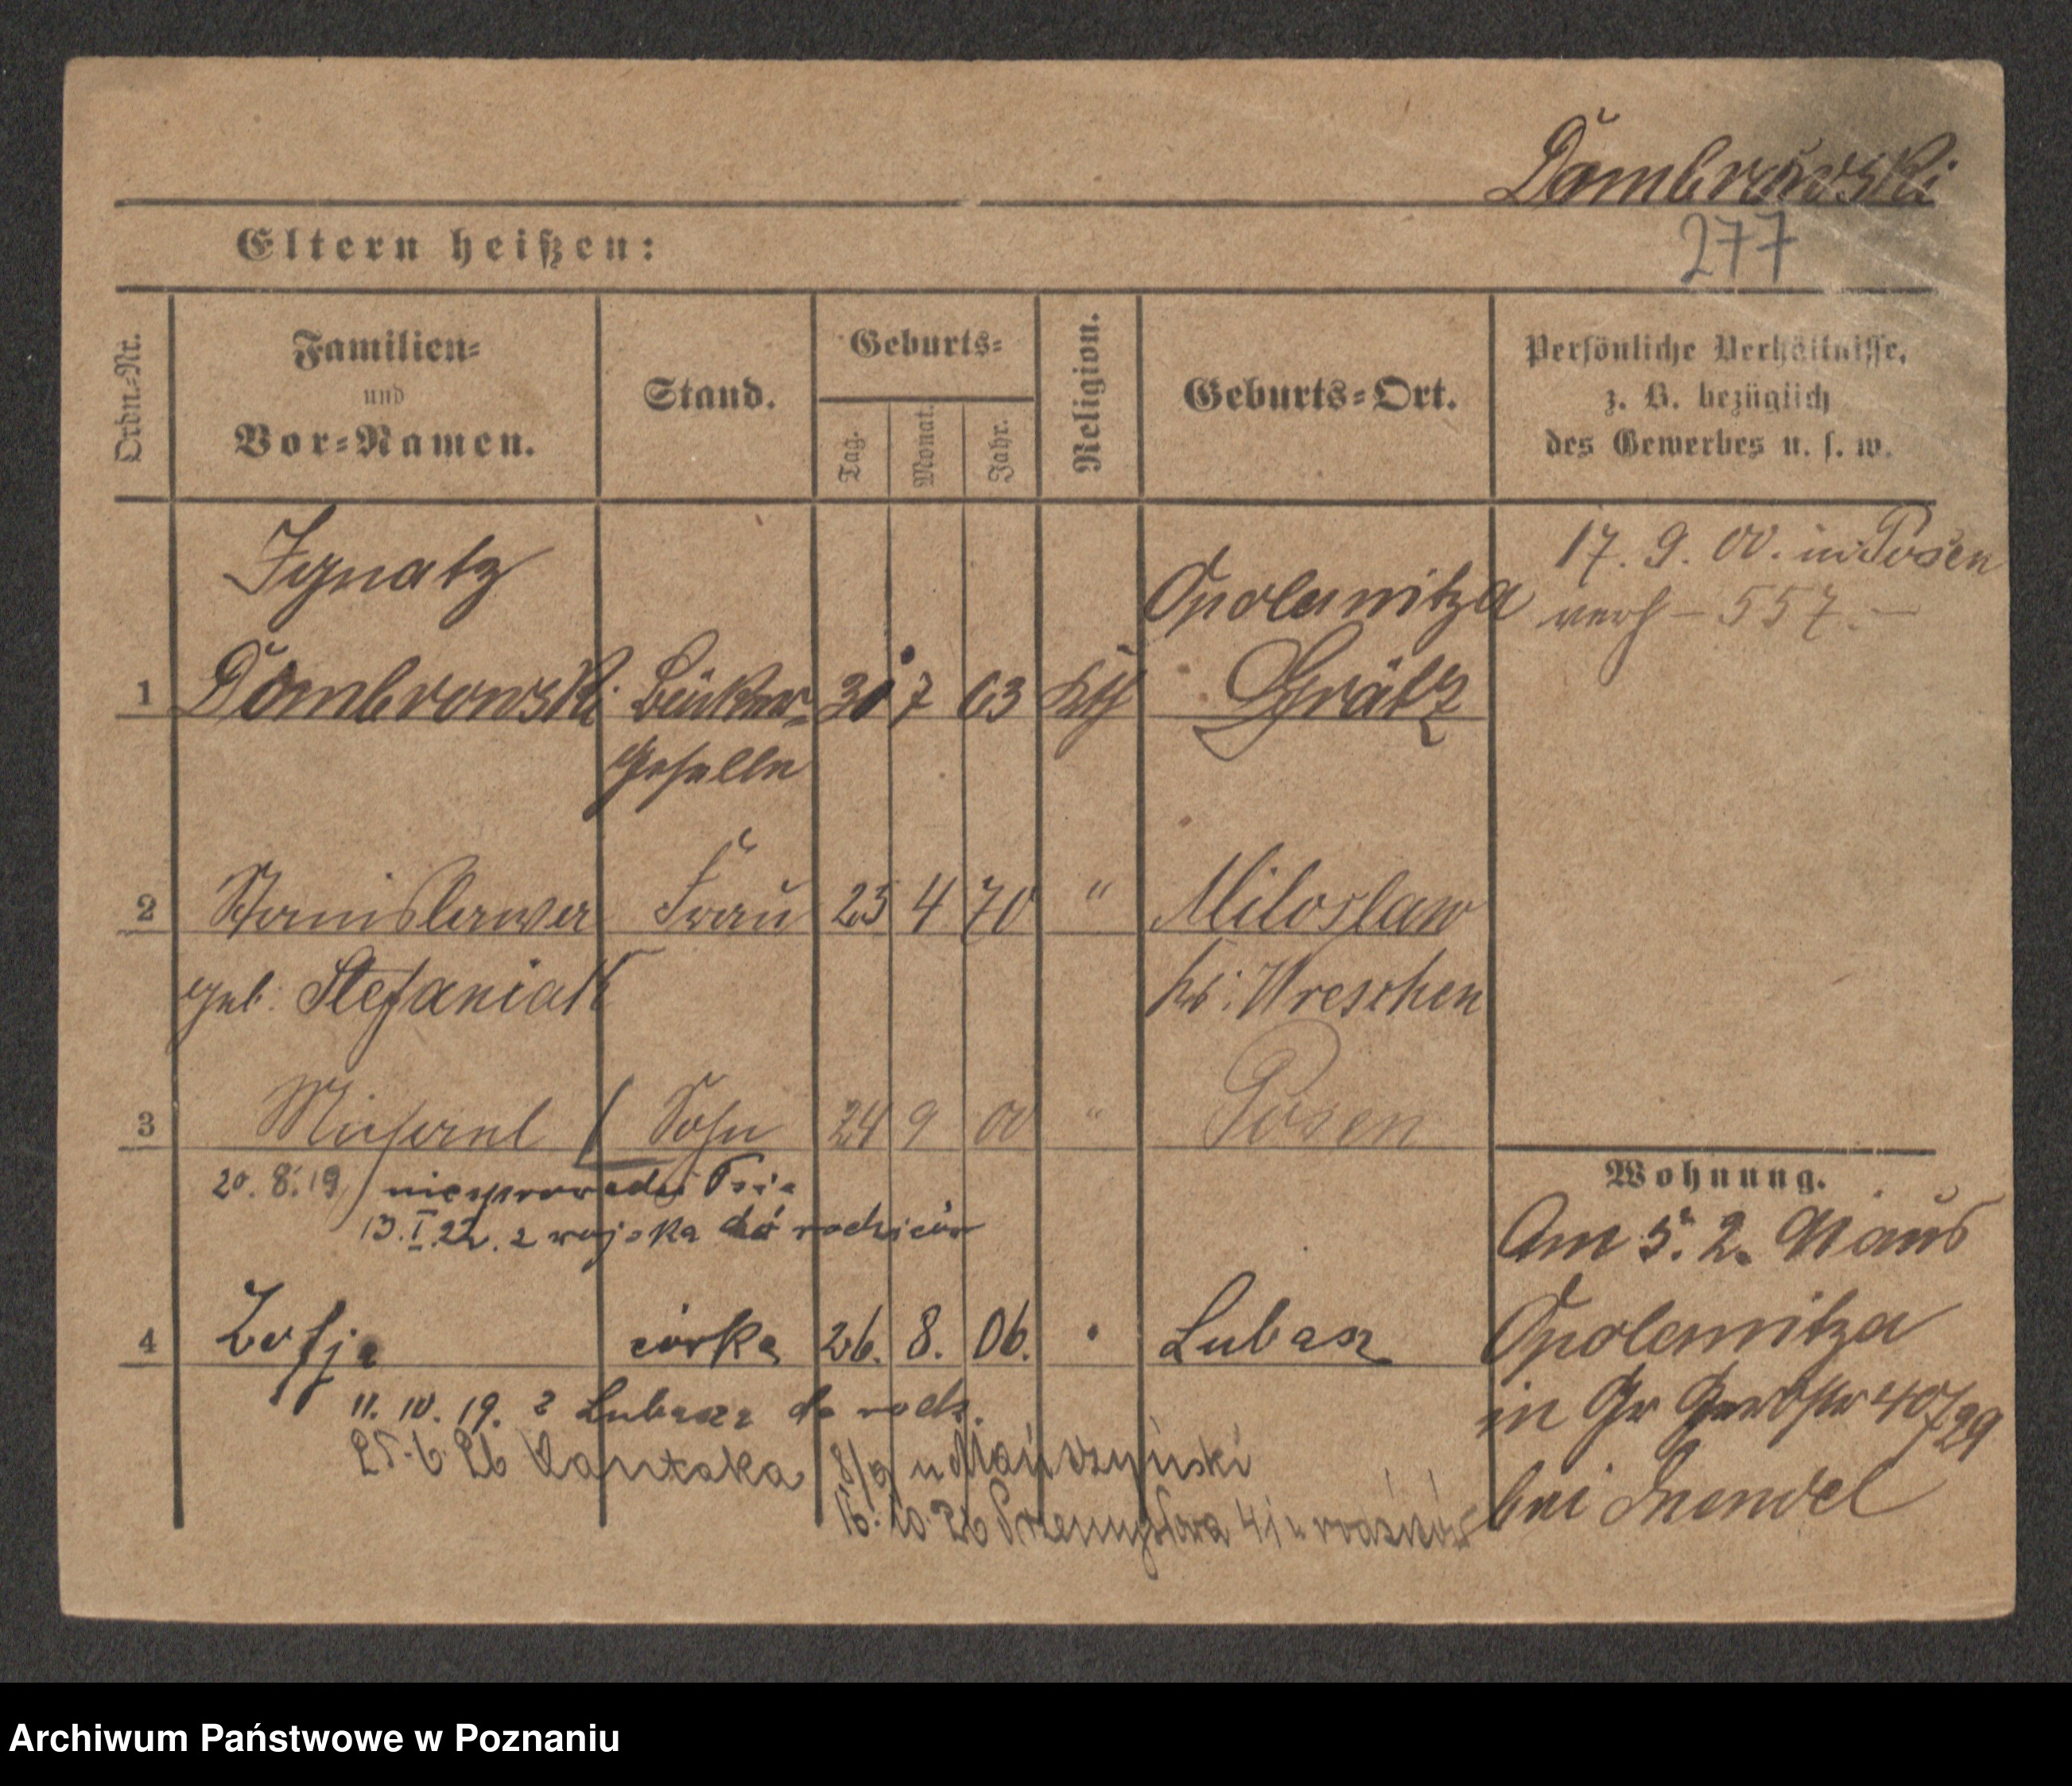 Dombrowski
277
Eltern heißen:
Ordn.-Nr.
Familien-
und
Vor-Namen.
Stand.
Geburts-
Tag.
Monat.
Jahr.
Religion.
Geburts-Ort.
Persönliche Verhältnisse,
z. B. bezüglich
des Gewerbes u. s. w.
Ignatz
Opalenitza
17. 9. 00. in Posen
verh - 557. -
1 Dombrowski Bäcker- 30 7 63 kth Grätz
Geselle
2 Stanislawa Frau 25 4 70 " Miloslaw
geb. Stefaniak Kr. Wreschen
3 Michael Sohn 24 9 00 " Posen
20. 8. 19
13. I. 22. z wojska do rodziców
Wohnung.
Am 5. 2. aus
4 Zofja córka 26. 8. 06. Lubasz
Opalenitza
11. 10. 19. z Lubasza do rodz.
in Gr Gerbstr 40/
25. 6. 26 Kantaka 8/9 u
16. 10. 26 Przemysłowa 41 u rodziców
bei
Archiwum Państwowe w Poznaniu